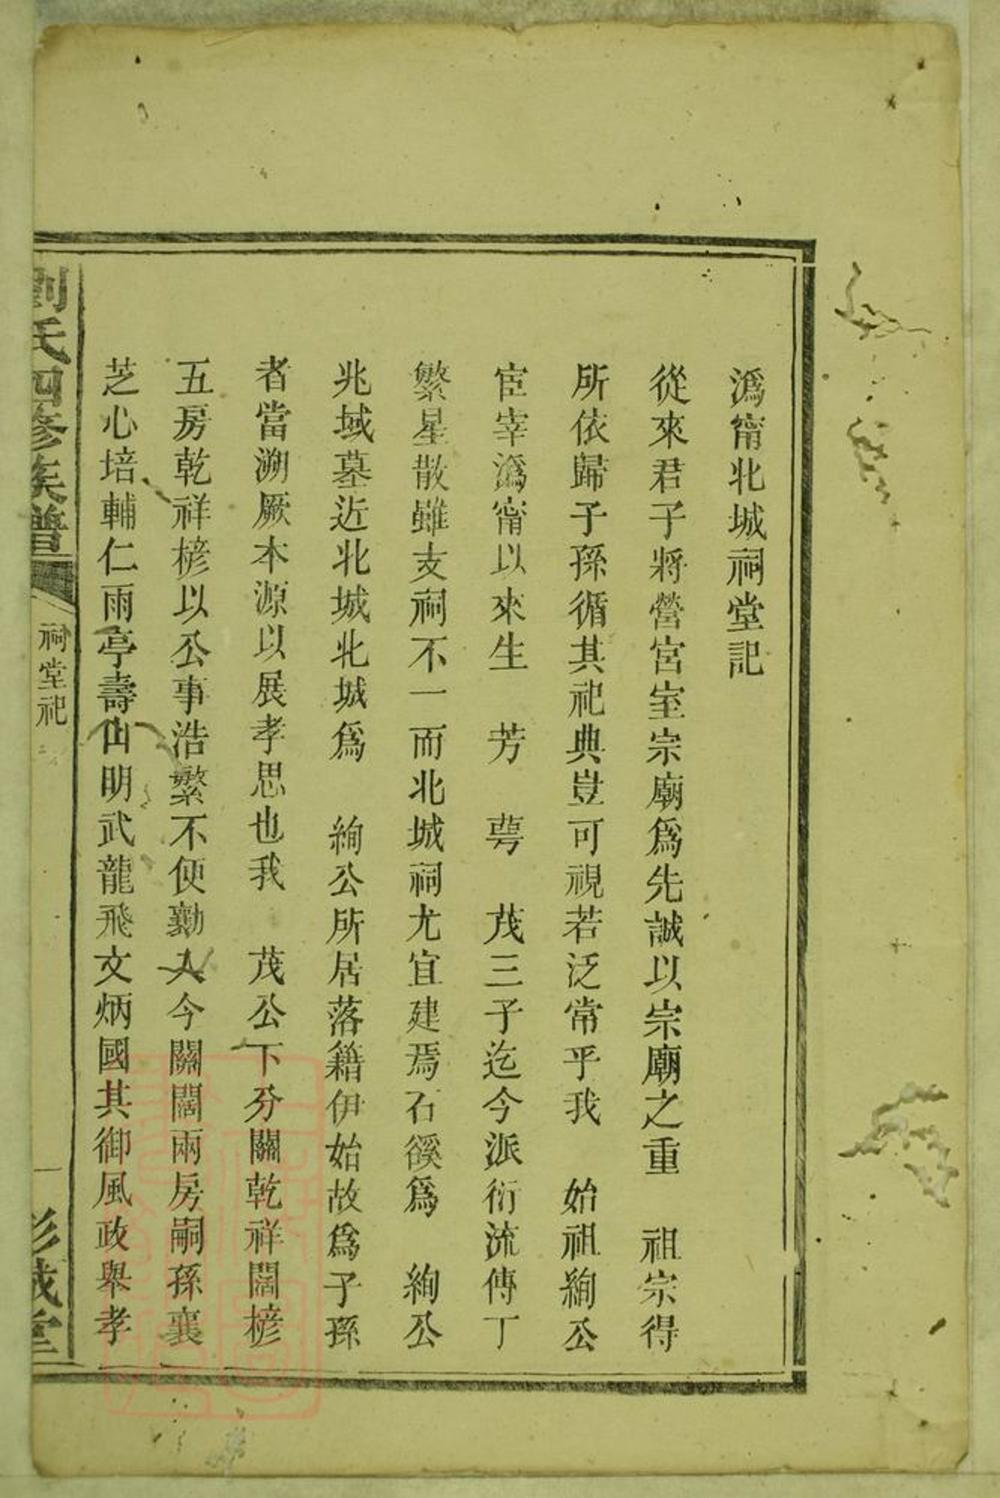 溈甯北城祠堂記
從來君子將營宮室宗廟爲先誠以宗廟之重　祖宗得
所依歸子孫循其祀典豈可視若泛常乎我　始祖絢公
宦宰溈甯以來生　芳　蕚　茂三子迄今派衍流傳丁
繁星散雖支祠不一而北城祠尤宜建焉石谿爲　絢公
兆域墓近北城北城爲　絢公所居落籍伊始故爲子孫
者當溯厥本源以展孝思也我　茂公下分關乾祥闊㮙
五房乾祥㮙以公事浩繁不便勷入今關闊兩房嗣孫襄
芝心培輔仁雨亭壽山明武龍飛文炳國其御風政舉孝
劉氏四修族譜
祠堂祀
一
彭城堂